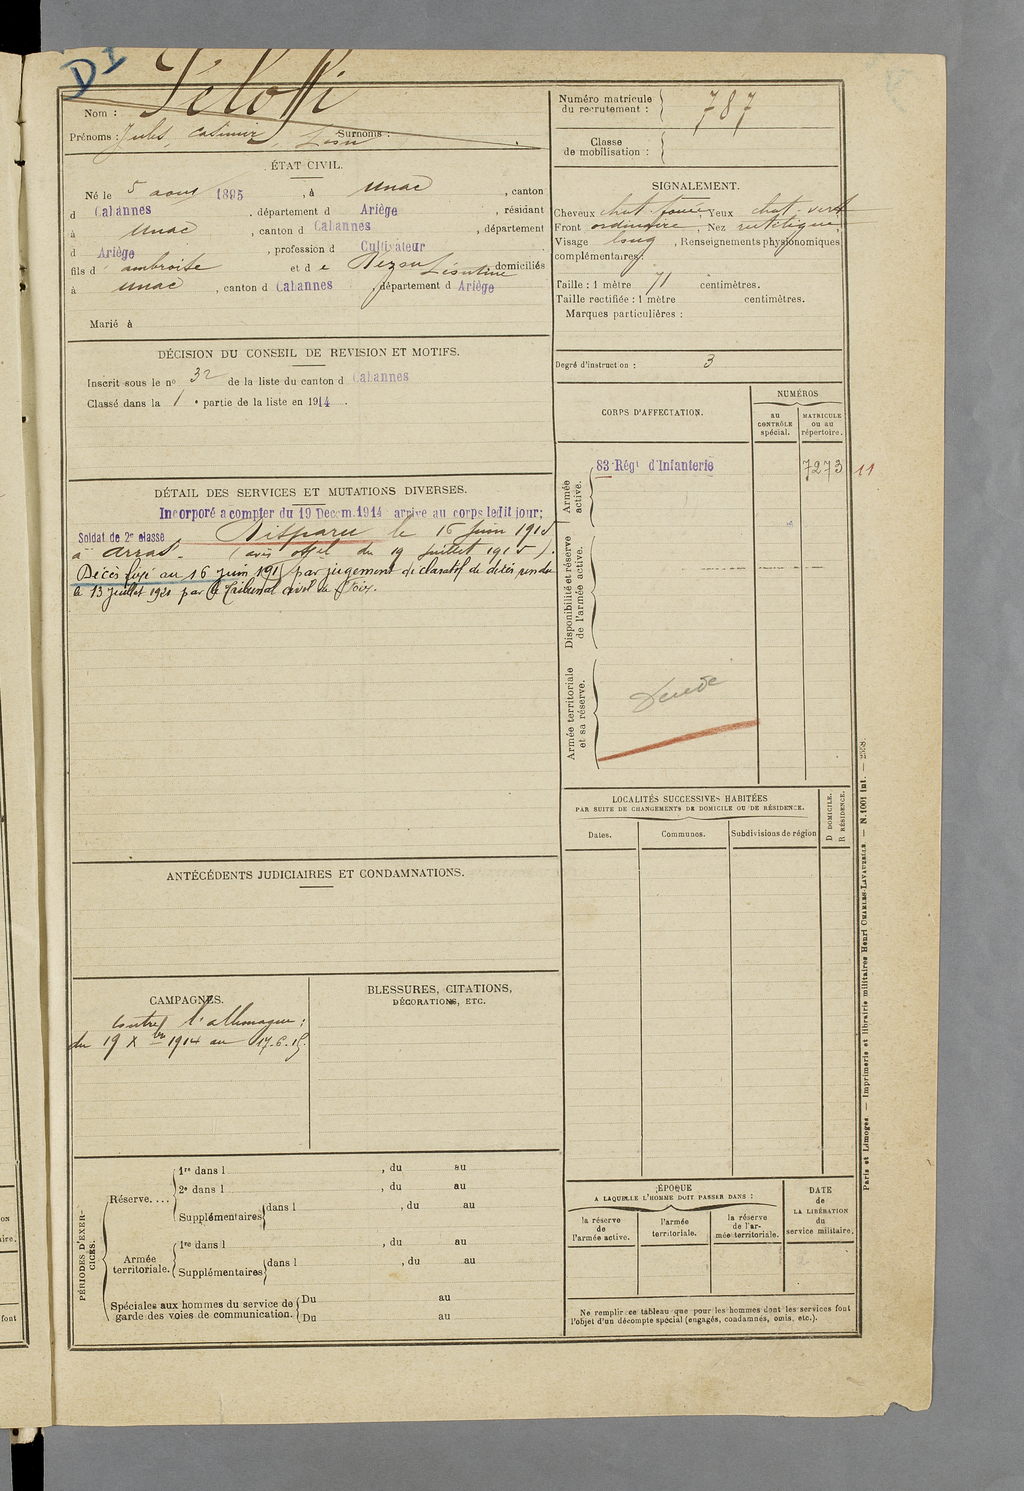 D1
Nom : Péloffi
Prénoms : Jules, Casimir, Léon Surnoms :
ÉTAT CIVIL.
Né le 5 aout 1895, à Unac, canton
d Cabannes, département d Ariège, résidant
à Unac, canton d Cabannes, département
d Ariège, profession d Cultivateur
fils d' ambroise et d e Léontine domiciliés
à Unac, canton d Cabannes, département d Ariège
Marié à
DÉCISION DU CONSEIL DE REVISION ET MOTIFS.
Inscrit sous le no 32 de la liste du canton d Cabannes
Classé dans la 1 e partie de la liste en 1914.
DÉTAIL DES SERVICES ET MUTATIONS DIVERSES.
Incorporé a compter du 19 Decem. 1914 arrive au corps ledit jour;
Soldat de 2e classe Disparu le 16 Juin 1915
à Arras. (avis offel du 19 Juillet 1915).
Décès fixé au 16 juin 1915 par jugement déclaratif de décès rendu
le 13 juillet 1920 par le Tribunal civil de Foix.
ANTÉCÉDENTS JUDICIAIRES ET CONDAMNATIONS.
CAMPAGNES.
Contre l'allemagne:
du 19 Xbre 1914 au 17.6.15.
BLESSURES, CITATIONS,
DÉCORATIONS, ETC.
PÉRIODES D'EXER-
CICES.
Réserve....
1re dans l , du au
2e dans l , du au
Supplémentaires dans l , du au
Armée
territoriale.
1re dans l , du au
Supplémentaires dans l , du au
Spéciales aux hommes du service de
garde des voies de communication.
Du au
Du au
Numéro matricule
du recrutement : 787
Classe
de mobilisation :
SIGNALEMENT.
Cheveux chat. foncé, Yeux chat. verd
Front ordinaire, Nez rectiligne,
Visage long, Renseignements physionomiques
complémentaires:
Taille : 1 mètre 71 centimètres.
Taille rectifiée : 1 mètre centimètres.
Marques particulières :
Degré d'instruction : 3
CORPS D'AFFECTATION.
NUMÉROS
au
CONTRÔLE
spécial.
MATRICULE
ou au
répertoire.
Armée
active.
83e Régt d'Infanterie 7273 11
Disponibilité et réserve
de l'armée active.
Armée territoriale
et sa réserve.
LOCALITÉS SUCCESSIVES HABITÉES
PAR SUITE DE CHANGEMENTS DE DOMICILE OU DE RÉSIDENCE.
Dates.
Communes.
Subdivisions de région
D DOMICILE.
R RÉSIDENCE.
ÉPOQUE
A LAQUELLE L'HOMME DOIT PASSER DANS :
la réserve
de
l'armée active.
l'armée
territoriale.
la réserve
de l'ar-
mée territoriale.
DATE
de
LA LIBÉRATION
du
service militaire.
Ne remplir ce tableau que pour les hommes dont les services font
l'objet d'un décompte spécial (engagés, condamnés, omis, etc.).
Paris et Limoges. — Imprimerie et librairie militaires Henri CHARLES-LAVAUZELLE — N. 1001 int. —